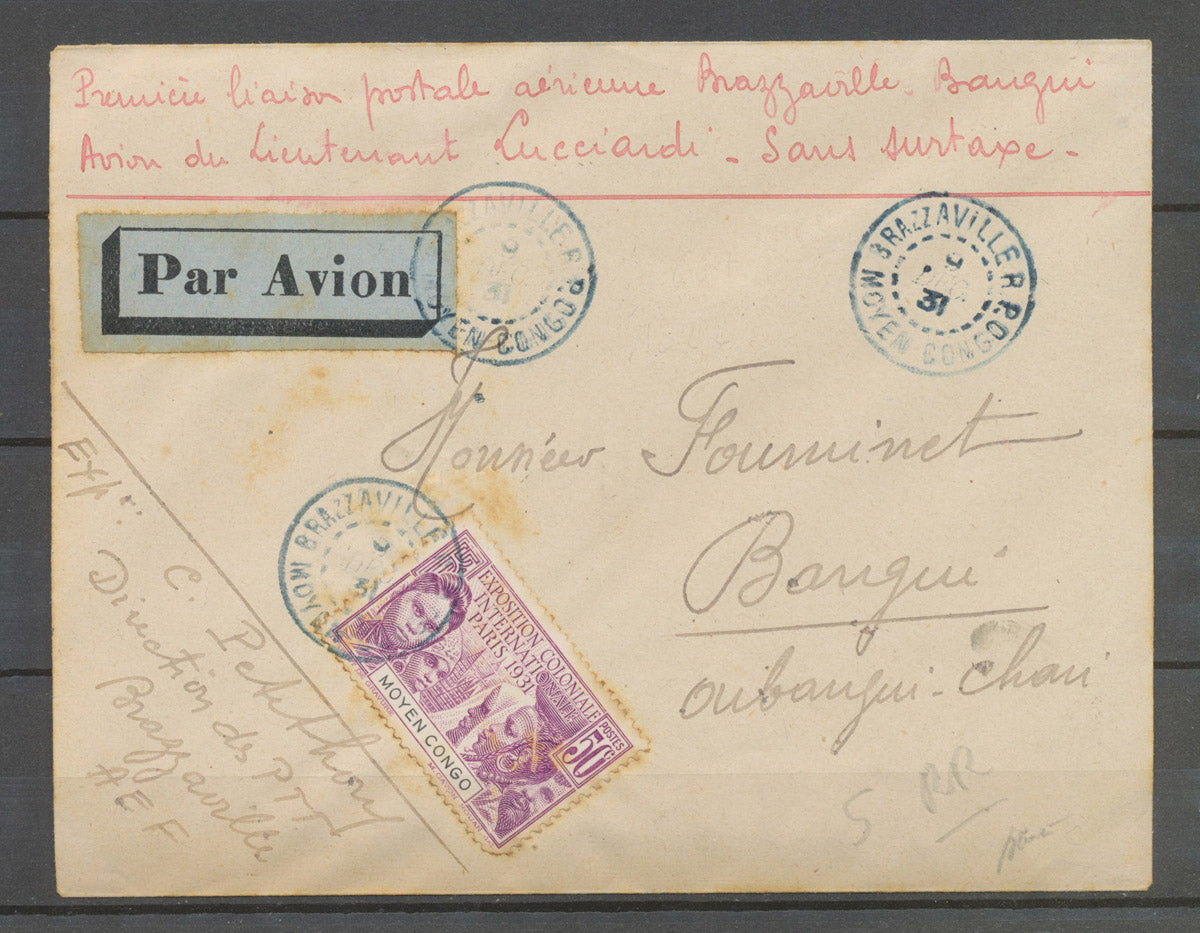 Première liaison postale aérienne Brazzaville. Bangui
Avion du Lieutenant Lucciardi - Sans surtaxe -
Par Avion
BRAZZAVILLE R.P.
31
MOYEN CONGO
BRAZZAVILLE R.P.
31
MOYEN CONGO
Monsieur Fouminet
Bangui
Oubangui-Chari
BRAZZAVILLE
31
MOYEN
EXPOSITION COLONIALE
INTERNATIONALE
PARIS 1931
POSTES
50 c
MOYEN CONGO
Expr:
C. Petithory
Direction des PTT
Brazzaville
A E F
5 RR